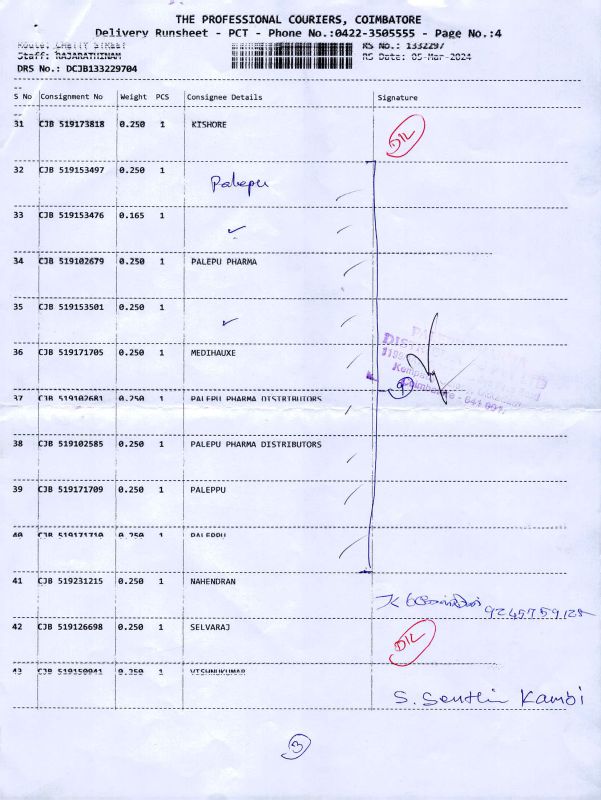 THE PROFESSIONAL COURIERS, COIMBATORE
Delivery Runsheet - PCT - Phone No.:0422-3505555 - Page No.:4
Route: CHETTY STREET RS No.: 1332297
Staff: RAJARATHINAM RS Date: 05-Mar-2024
DRS No.: DCJB133229704
S No Consignment No Weight PCS Consignee Details Signature
31 CJB 519173818 0.250 1 KISHORE D/L
32 CJB 519153497 0.250 1 Palepu
33 CJB 519153476 0.165 1
34 CJB 519102679 0.250 1 PALEPU PHARMA
35 CJB 519153501 0.250 1
36 CJB 519171705 0.250 1 MEDIHAUXE
37 CJB 519102681 0.250 1 PALEPU PHARMA DISTRIBUTORS
9
Coimbatore - 641 001.
38 CJB 519102585 0.250 1 PALEPU PHARMA DISTRIBUTORS
39 CJB 519171709 0.250 1 PALEPPU
40 CJB 519171710 0.250 1 PALEPPU
41 CJB 519231215 0.250 1 NAHENDRAN
42 CJB 519126698 0.250 1 SELVARAJ D/L
43 CJB 519150941 0.250 1 VISHNUKUMAR
S. Senthil Kambi
3